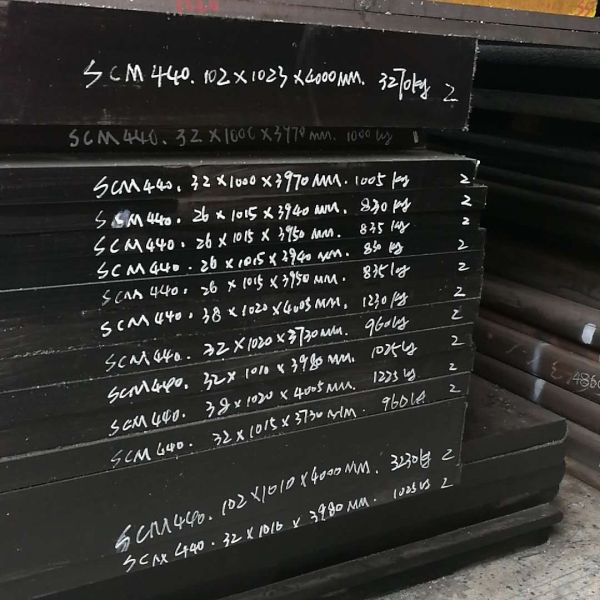 SCM 440. 102 × 1023 × 4000 MM. 3270kg 2
SCM 440. 32 × 1000 × 3970 MM. 1000 kg
SCM 440. 32 × 1000 × 3970 MM. 1005 kg 2
SCM 440. 26 × 1015 × 3940 MM. 830 kg 2
SCM 440. 26 × 1015 × 3950 MM. 835 kg 2
SCM 440. 26 × 1015 × 3940 MM. 830 kg 2
SCM 440. 26 × 1015 × 3950 MM. 835 kg 2
SCM 440. 38 × 1020 × 4005 MM. 1230 kg 2
SCM 440. 32 × 1020 × 3730 MM. 960 kg 2
SCM 440. 32 × 1010 × 3980 MM. 1025 kg 2
SCM 440. 38 × 1020 × 4005 MM. 1225 kg 2
SCM 440. 32 × 1015 × 3730 MM. 960 kg 2
SCM 440. 102 × 1010 × 4000 MM. 3230 kg 2
SCM 440. 32 × 1010 × 3980 MM. 1025 kg 2